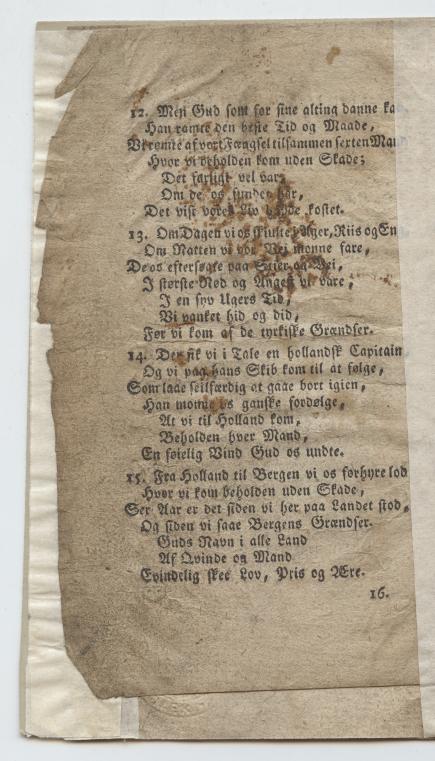 12. Men Gud som for sine alting danne ka
Han ramte den beste Tid og Maade,
Vi rømte af vort Fængsel tilsammen sexten Man
Hvor vi beholden kom uden Skade;
Det farligt vel var,
Om de os funden har,
Det vist vores Liv havde kostet.
13. Om Dagen vi os skiulte i Ager, Riis og En
Om Natten vi vor Vei monne fare,
De os eftersøgte paa Stier og Vei,
I største Nød og Angest vi vare,
I en syv Ugers Tid,
Vi vanket hid og did,
Før vi kom af de tyrkiske Grændser.
14. Der fik vi i Tale en hollandsk Capitain
Og vi paa hans Skib kom til at følge,
Som laae seilfærdig at gaae bort igien,
Han monne os ganske fordølge,
At vi til Holland kom,
Beholden hver Mand,
En føielig Vind Gud os undte.
15. Fra Holland til Bergen vi os forhyre lod
Hvor vi kom beholden uden Skade,
Sex Aar er det siden vi her paa Landet stod,
Og siden vi saae Bergens Grændser.
Guds Navn i alle Land
Af Qvinde og Mand
Evindelig skee Lov, Pris og Ære.
16.